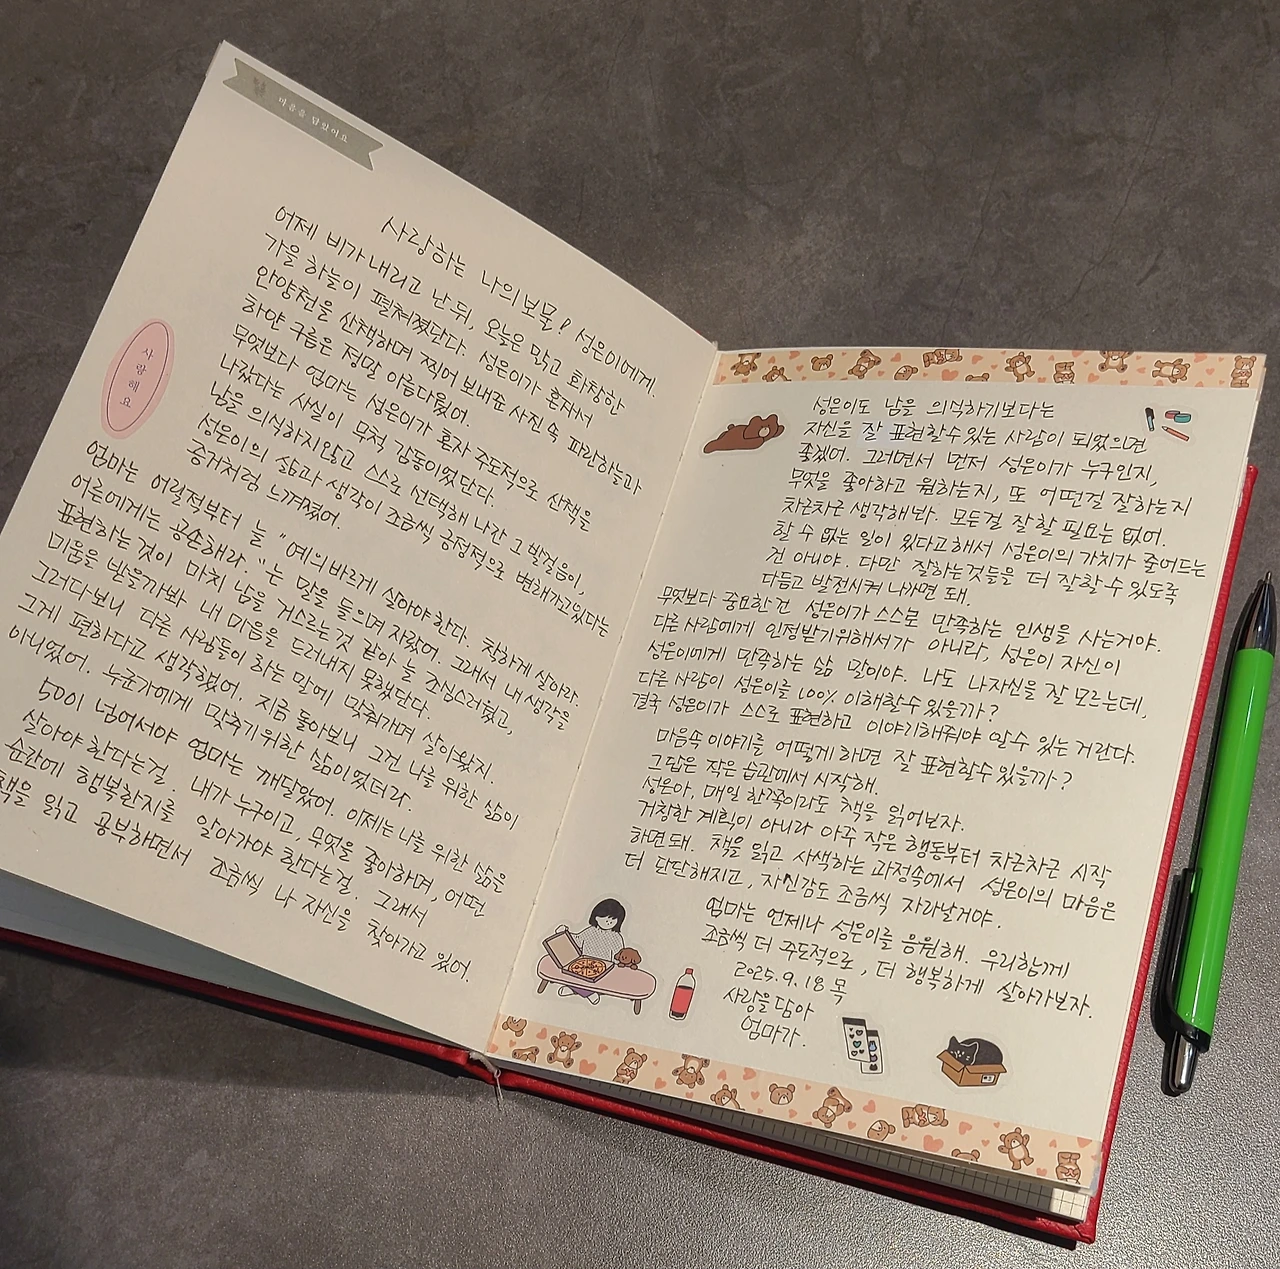 마음을 담았어요
사랑하는 나의 보물! 성은이에게.
어제 비가 내리고 난 뒤, 오늘은 맑고 화창한
가을 하늘이 펼쳐졌단다. 성은이가 혼자서
안양천을 산책하며 찍어 보내준 사진 속 파란하늘과
하얀 구름은 정말 아름다웠어.
무엇보다 엄마는 성은이가 혼자 주도적으로 산책을
나갔다는 사실이 무척 감동이었단다.
남을 의식하지않고 스스로 선택해 나간 그 발걸음이,
성은이의 삶과 생각이 조금씩 긍정적으로 변해가고있다는
증거처럼 느껴졌어.
사랑해요
엄마는 어릴적부터 늘 "예의바르게 살아야 한다. 착하게 살아라.
어른에게는 공손해라."는 말을 들으며 자랐어. 그래서 내 생각을
표현하는 것이 마치 남을 거스르는것 같아 늘 조심스러웠고,
미움을 받을까봐 내 마음을 드러내지 못했단다.
그러다보니 다른 사람들이 하는 말에 맞춰가며 살아왔지.
그게 편하다고 생각했어. 지금 돌아보니 그건 나를 위한 삶이
아니었어. 누군가에게 맞추기위한 삶이었더라.
50이 넘어서야 엄마는 깨달았어. 이제는 나를 위한 삶을
살아야 한다는걸. 내가 누구이고, 무엇을 좋아하며, 어떤
순간에 행복한지를 알아가야 한다는걸. 그래서
책을 읽고 공부하면서 조금씩 나 자신을 찾아가고 있어.
성은이도 남을 의식하기보다는
자신을 잘 표현할수있는 사람이 되었으면
좋겠어. 그러면서 먼저 성은이가 누구인지,
무엇을 좋아하고 원하는지, 또 어떤걸 잘하는지
차근차근 생각해봐. 모든걸 잘할 필요는 없어.
할 수 없는 일이 있다고해서 성은이의 가치가 줄어드는
건 아니야. 다만 잘하는것들을 더 잘할수 있도록
다듬고 발전시켜 나가면 돼.
무엇보다 중요한건 성은이가 스스로 만족하는 인생을 사는거야.
다른사람에게 인정받기위해서가 아니라, 성은이 자신이
성은이에게 만족하는 삶 말이야. 나도 나자신을 잘 모르는데,
다른 사람이 성은이를 100% 이해할수 있을까?
결국 성은이가 스스로 표현하고 이야기해줘야 알수 있는 거란다.
마음속 이야기를 어떻게 하면 잘 표현할수있을까?
그답은 작은 습관에서 시작해.
성은아, 매일 한쪽이라도 책을 읽어보자.
거창한 계획이 아니라 아주 작은 행동부터 차근차근 시작
하면 돼. 책을 읽고 사색하는 과정속에서 성은이의 마음은
더 단단해지고, 자신감도 조금씩 자라날거야.
엄마는 언제나 성은이를 응원해. 우리함께
조금씩 더 주도적으로, 더 행복하게 살아가보자.
2025.9.18 목
사랑을 담아
엄마가.